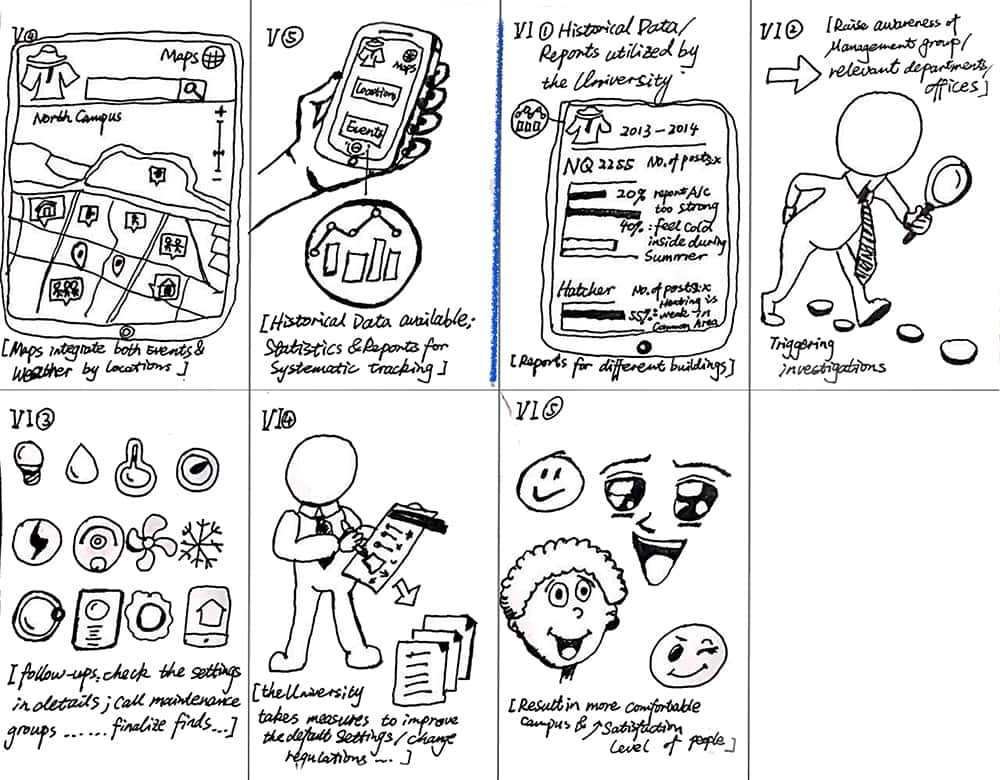 V④
Maps
North Campus
+
-
[Maps integrate both Events &
Weather by locations ]
V⑤
Maps
Locations
Events
[Historical Data available;
Statistics & Reports for
Systematic tracking ]
VI ① Historical Data/
Reports utilized by
the University
2013-2014
NQ 2255 No. of posts: x
20% report A/C
too strong
40%: feel cold
inside during
Summer
Hatcher No. of posts: x
55%: Heating is
weak in
Common Area
[Reports for different buildings]
VI②
[Raise awareness of
Managements group/
relevant departments/
offices]
Triggering
investigations
VI③
[follow-ups. check the settings
in details; call maintenance
groups ...... finalize finds...]
VI④
[the University
takes measures to improve
the default settings/change
regulations ... ]
VI⑤
[Result in more comfortable
campus & ↗ Satisfaction
level of people]